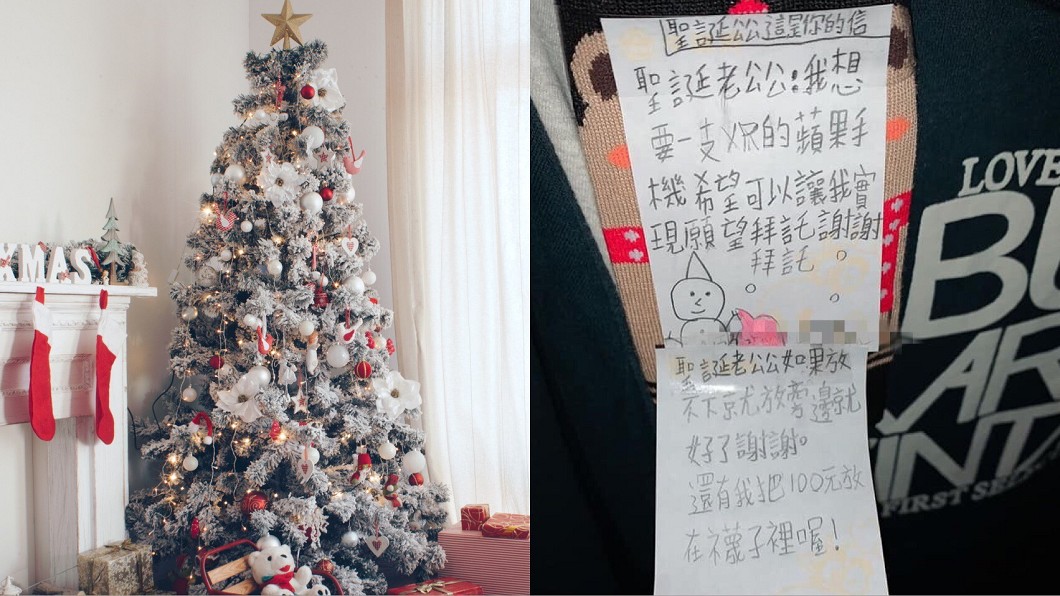 XMAS
聖誕公公這是你的信
聖誕老公公:我想
要一支XR的蘋果手
機希望可以讓我實
現願望拜託謝謝
拜託。
聖誕老公公如果放
不下就放旁邊就
好了謝謝。
還有我把100元放
在襪子裡喔!
LOVE
FIRST